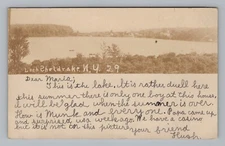 Lake Sheldrake N.Y. 29
Dear Maria;
This is the lake. It is rather duell here
this summer there is only one boy at this house.
I will be glad when the summer is over.
How is Munk and every one. Papa came up
and surprised us a week ago. We have a casino
but it is not on this picture your friend
Hugh.